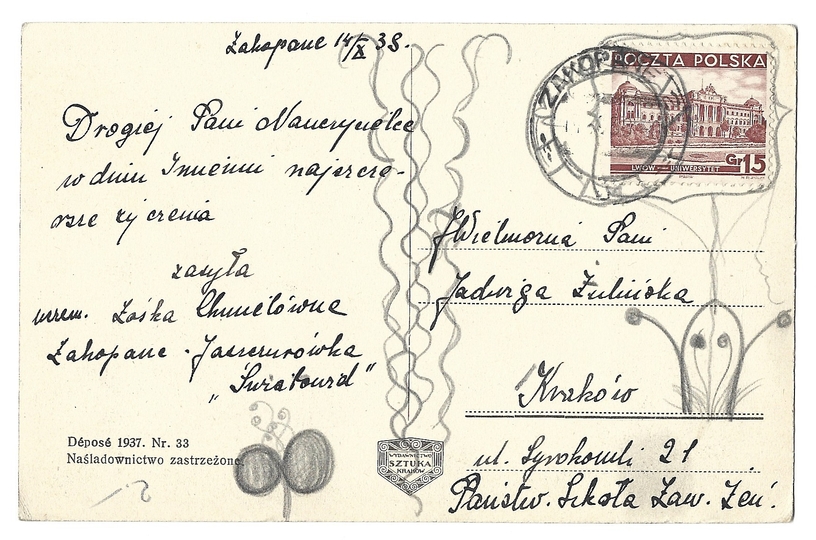 Zakopane 14/X 38.
Drogiej Pani Nauczycielce
w dniu Imienin najszczę-
rsze życzenia
zasyła
uczen. Zośka Chmelówna
Zakopane - Jaszczurówka
"Światowid"
Déposé 1937. Nr. 33
Naśladownictwo zastrzeżone.
WYDAWNICTWO
SZTUKA
KRAKÓW
POCZTA POLSKA
Gr 15
LWÓW — UNIWERSYTET
ZAKOPANE
JWielmożna Pani
Jadwiga Zulińska
Kraków
ul. Syrokomli 21
Państw. Szkoła Zaw. Żeń.